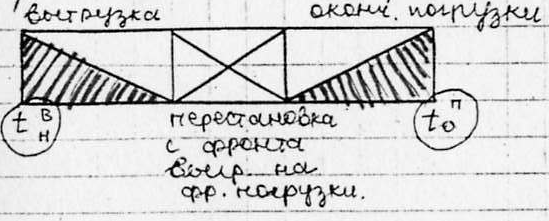 выгрузка
оконч. погрузки
t в н
t п о
перестановка
с фронта
выгр. на
фр. погрузки.